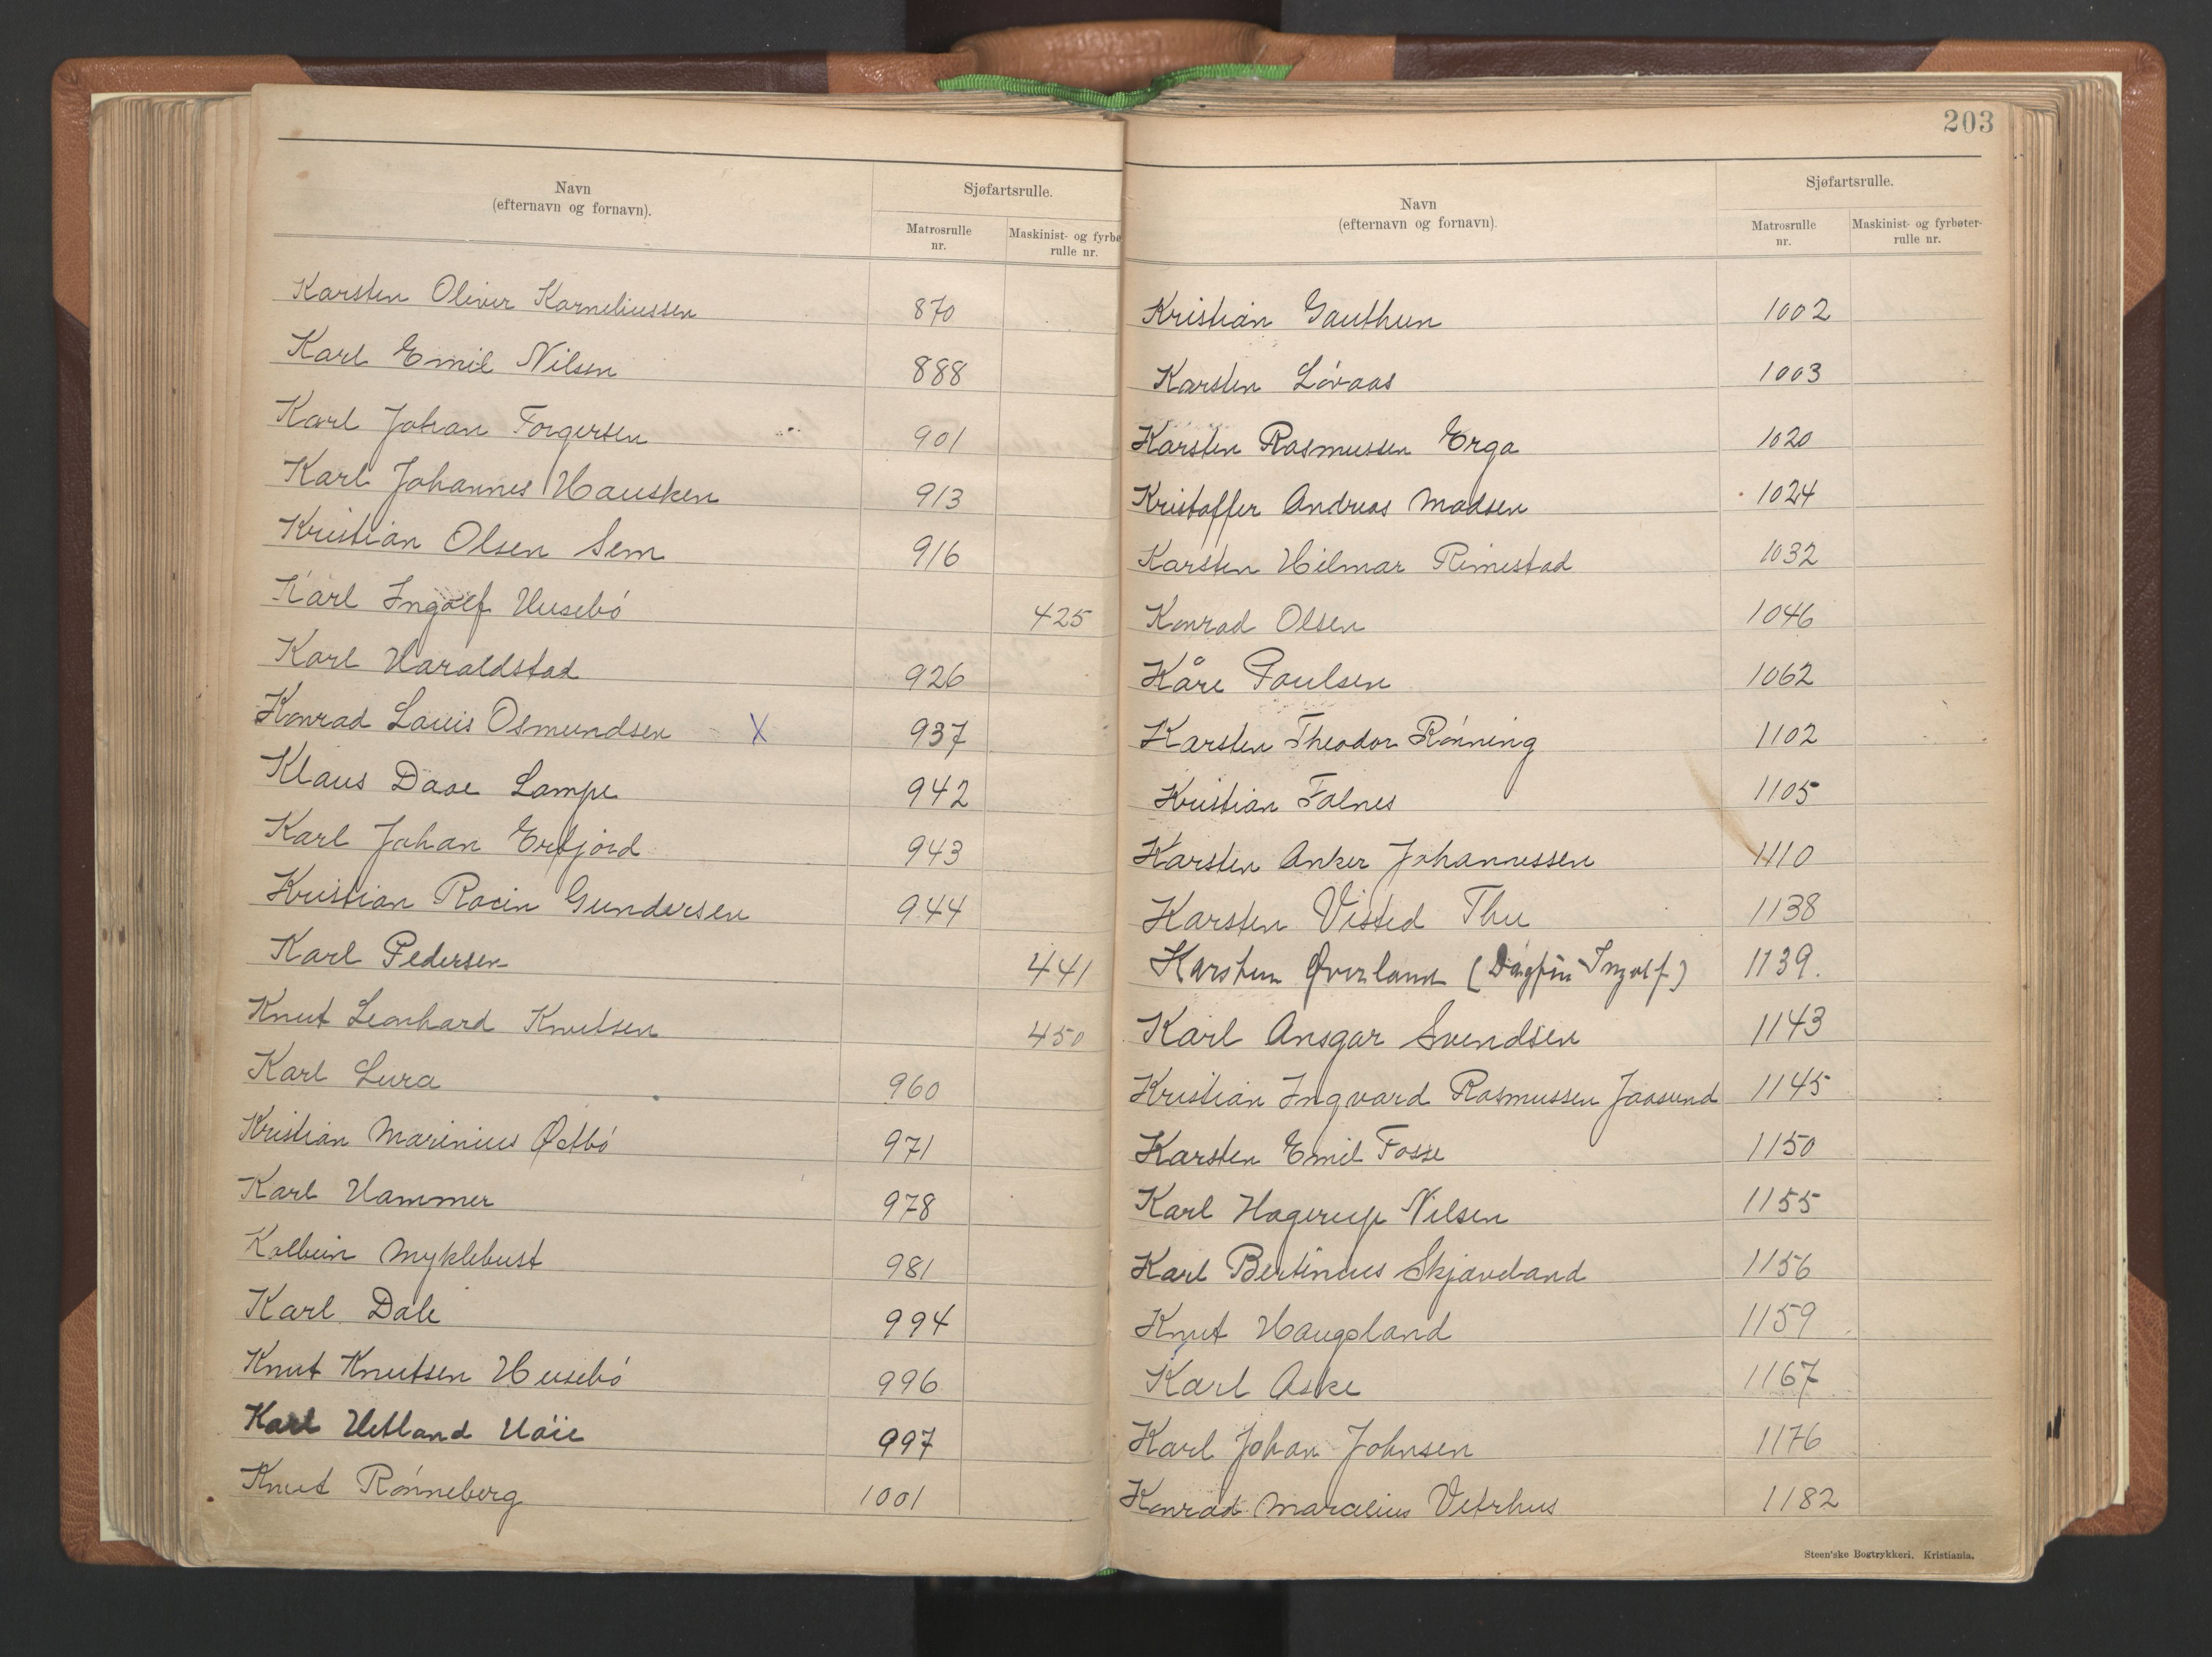 Navn
(efternavn og fornavn).
Sjøfartsrulle.
Matrosrulle
nr.
Maskinist- og fyrbø
rulle nr.
Karsten Oliver Korneliussen 870
Karl Emil Nilsen 888
Karl Johan Torgersen 901
Karl Johannes Hausken 913
Kristian Olsen Sem 916
Karl Ingolf Husebó 425
Karl Haraldstad 926
Konrad Louis Osmundsen X 937
Klaus Daae Lampe 942
Karl Johan Erfjord 943
Kristian Racin Gundersen 944
Karl Pedersen 441
Knut Leonhard Knutsen 450
Karl Lura 960
Kristian Marinius Østbó 971
Karl Hammer 978
Kolbein Myklebust 981
Karl Dale 994
Knut Knutsen Husebó 996
Karl Hetland Hóie 997
Knut Rónneberg 1001
203
Navn
(efternavn og fornavn).
Sjøfartsrulle.
Matrosrulle
nr.
Maskinist- og fyrbøter-
rulle nr.
Kristian Gauthun 1002
Karsten Lóvaas 1003
Karsten Rasmussen Erga 1020
Kristoffer Andreas Madsen 1024
Karsten Hilmar Rimestad 1032
Konrad Olsen 1046
Kåre Poulsen 1062
Karsten Theodor Rónning 1102
Kristian Falnes 1105
Karsten Anker Johannessen 1110
Karsten Visted Thu 1138
Karsten Øverland (Dagfin Ingolf) 1139.
Karl Ansgar Svendsen 1143
Kristian Ingvard Rasmussen Jaasund 1145
Karsten Emil Fosse 1150
Karl Hagerup Nilsen 1155
Karl Bertinius Skjæveland 1156
Knut Haugland 1159
Karl Aske 1167
Karl Johan Johnsen 1176
Konrad Marcelius Vetrhus 1182
Steen'ske Bogtrykkeri. Kristiania.